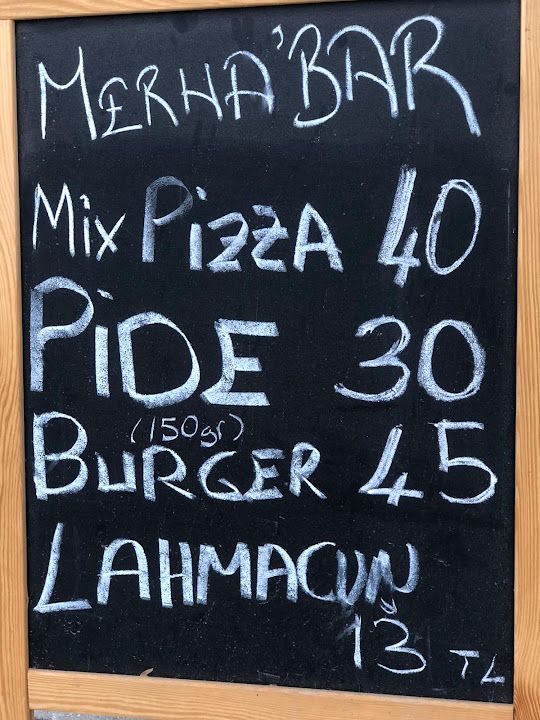 MERHA'BAR
Mix PizzA 40
PiDE 30
(150gr)
BURGER 45
LAHMACUN
13 TL